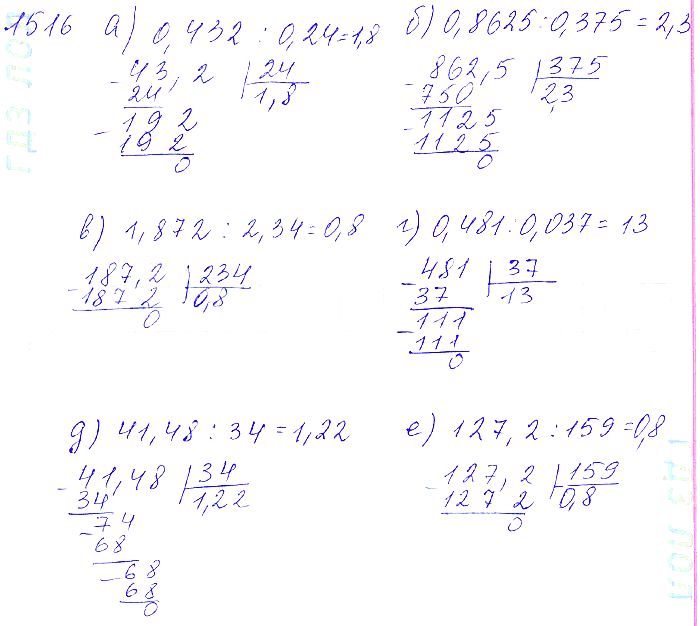 1516 а) 0,432 : 0,24=1,8
43,2 24
24 1,8
192
192
0
б) 0,8625:0,375=2,3
862,5 375
750 2,3
1125
1125
0
в) 1,872 : 2,34=0,8
187,2 234
187 2 0,8
0
г) 0,481:0,037=13
481 37
37 13
111
111
0
д) 41,48 : 34=1,22
41,48 34
34 1,22
74
68
68
68
0
е) 127,2:159=0,8
127,2 159
127 2 0,8
0